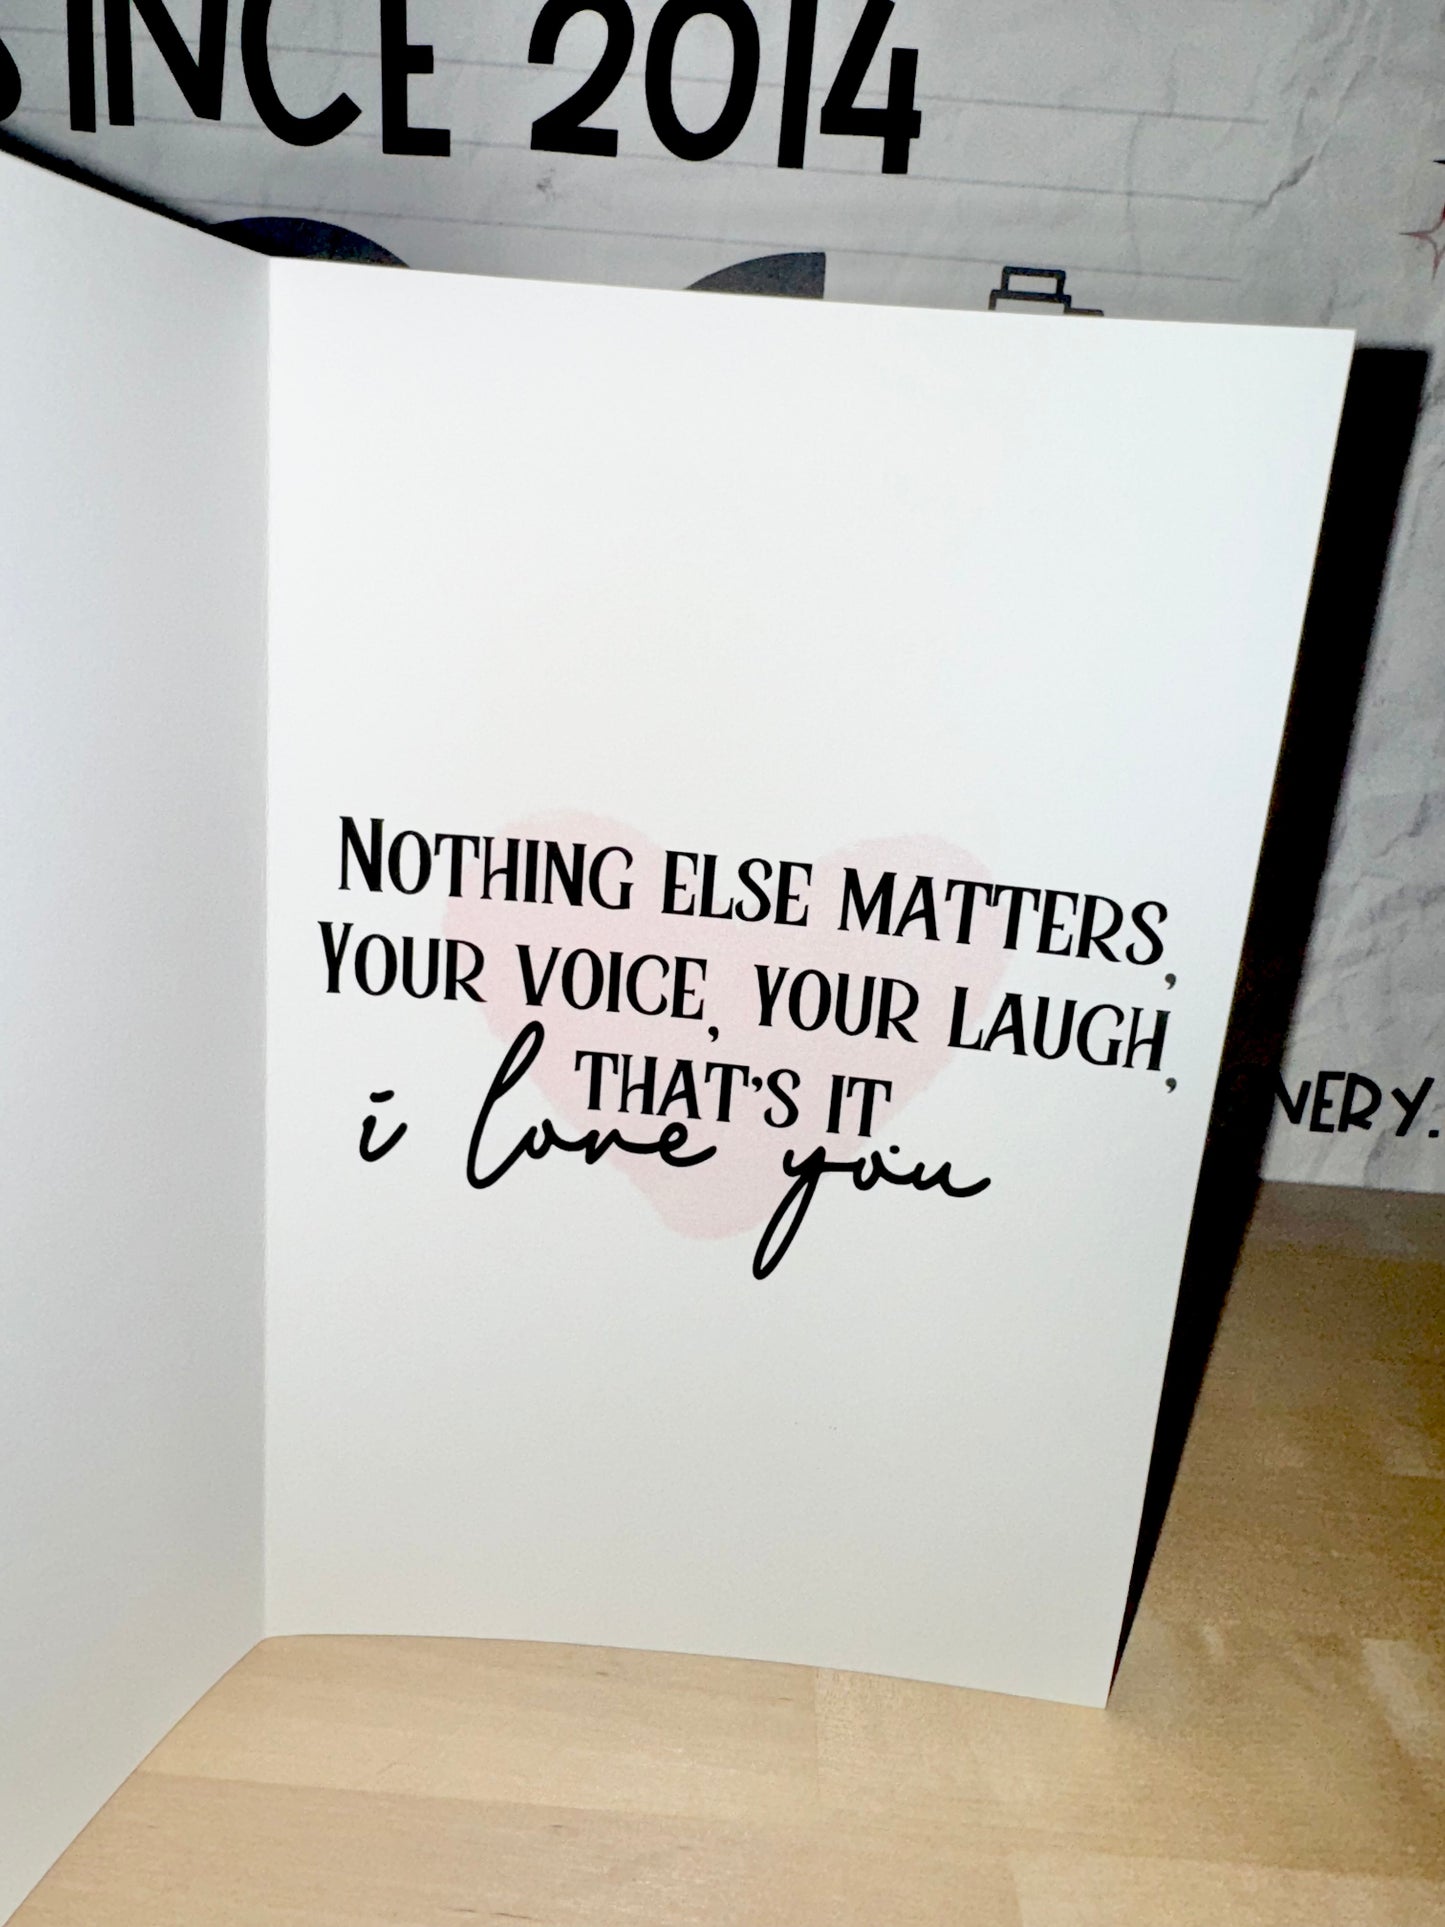 SINCE 2014
NOTHING ELSE MATTERS,
YOUR VOICE, YOUR LAUGH,
THAT'S IT.
i love you